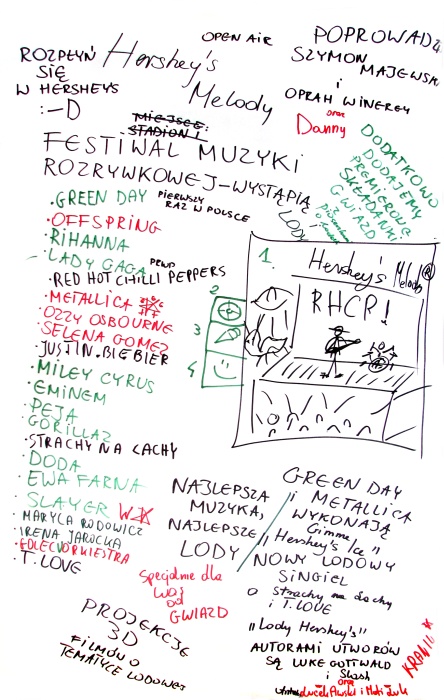 OPEN AIR
Hershey's
Melody
ROZPŁYŃ
SIĘ
W HERSHEYS
:-D
MIEJSCE:
STADION!
POPROWADZĄ
SZYMON
MAJEWSKI
i
OPRAH WINFREY
oraz
Danny
FESTIWAL MUZYKI
ROZRYWKOWEJ-WYSTĄPIĄ
DODATKOWO
DODAJEMY
PREMIEROWE
SKŁADANKI
GWIAZD
LODY
· GREEN DAY PIERWSZY
RAZ W POLSCE
· OFFSPRING
· RIHANNA
- LADY GAGA
· RED HOT CHILLI PEPPERS
· METALLICA
· OZZY OSBOURNE
· SELENA GOMEZ
· JUSTIN BIEBIER
· MILEY CYRUS
· EMINEM
· PEJA
· GORILLAZ
· STRACHY NA LACHY
· DODA
· EWA FARNA
· SLAYER
· MARYLA RODOWICZ
· IRENA JAROCKA
· T.LOVE
1.
Hershey's Melody
RHCP!
2
3
4
NAJLEPSZA
MUZYKA,
NAJLEPSZE
LODY
Specjalnie dla
WAS
od
GWIAZD
GREEN DAY
i METALLICA
WYKONAJĄ
"Gimme
Hershey's Ice"
NOWY LODOWY
SINGIEL
o Strachy na Lachy
i T.LOVE
"Lody Hershey's"
AUTORAMI UTWORÓW
SĄ LUKE GOTTWALD
i Slash
oraz
PROJEKCJE
3D
FILMÓW O
TEMATYCE LODOWEJ